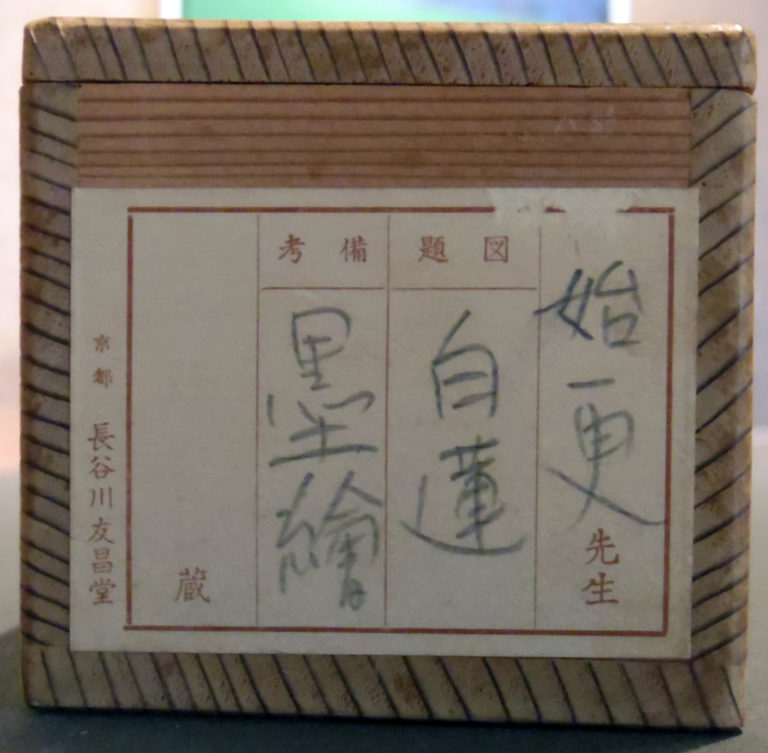 始更先生
図題
白蓮
備考
墨繪
蔵
京都 長谷川友昌堂